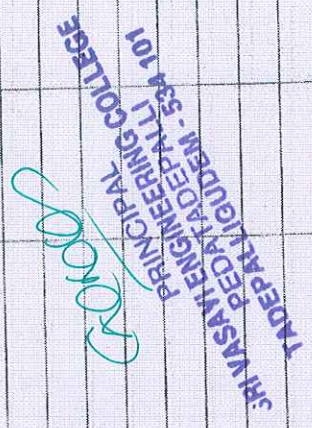 PRINCIPAL
SRI VASAVI ENGINEERING COLLEGE
PEDATADEPALLI
TADEPALLIGUDEM - 534 101